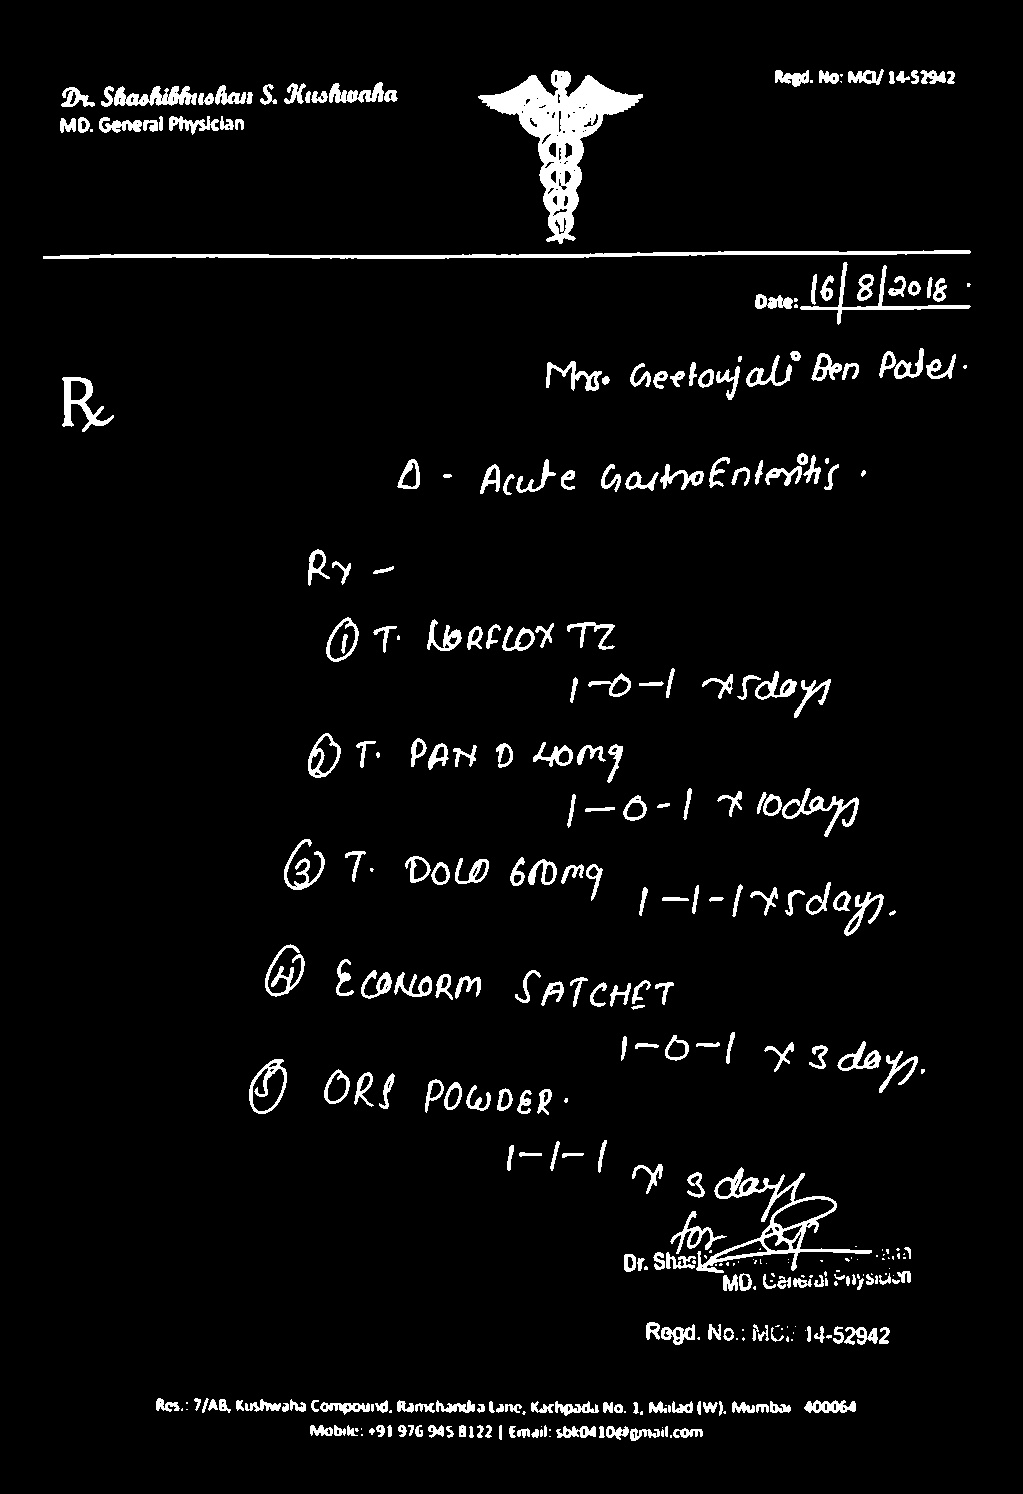 Dr. Shashibhushan S. Kushwaha
MD. General Physician
Regd. No: MCI/ 14-52942
Date: 16/8/2018
Rx
Mrs. Geetanjali Ben Patel.
Δ - Acute GastroEnteritis.
Rx -
① T. NORFLOX TZ
1-0-1 x 5days
② T. PAN D 40mg
1-0-1 x 10days
③ T. DOLO 600mg
1-1-1 x 5days.
④ ECONORM SATCHET
1-0-1 x 3 days.
⑤ ORS POWDER.
1-1-1 x 3 days
for
Dr. Shas
MD. General Physician
Regd. No.: MCI/ 14-52942
Res.: 7/AB, Kushwaha Compound, Ramchandra Lane, Kachpada No. 1, Malad (W), Mumbai 400064
Mobile: +91 976 945 8122 | Email: sbk0410@gmail.com